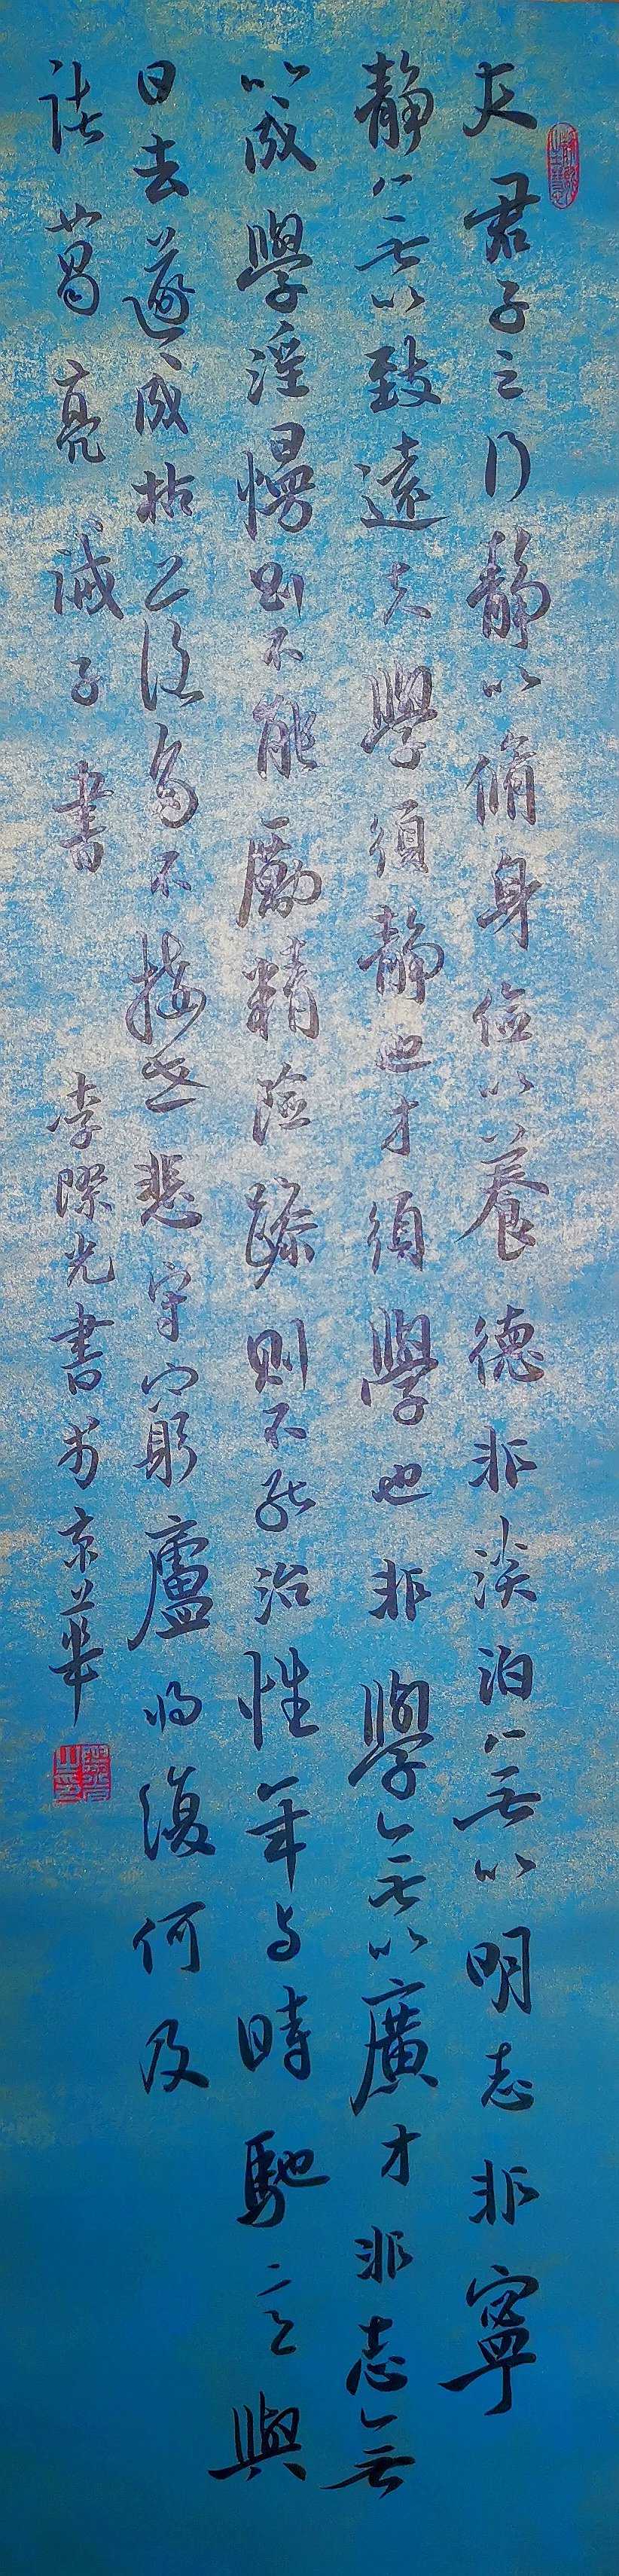 夫君子之行靜以脩身儉以養德非淡泊無以明志非寧
靜無以致遠夫學須靜也才須學也非學無以廣才非志無
以成學淫慢則不能勵精險躁則不能治性年与時馳意與
日去遂成枯落多不接世悲守窮廬將復何及
諸葛亮誡子書 李際光書於京華